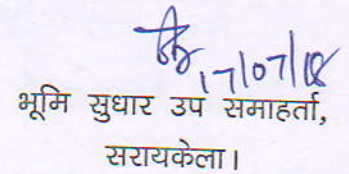 17/07/18
भूमि सुधार उप समाहर्ता,
सरायकेला।